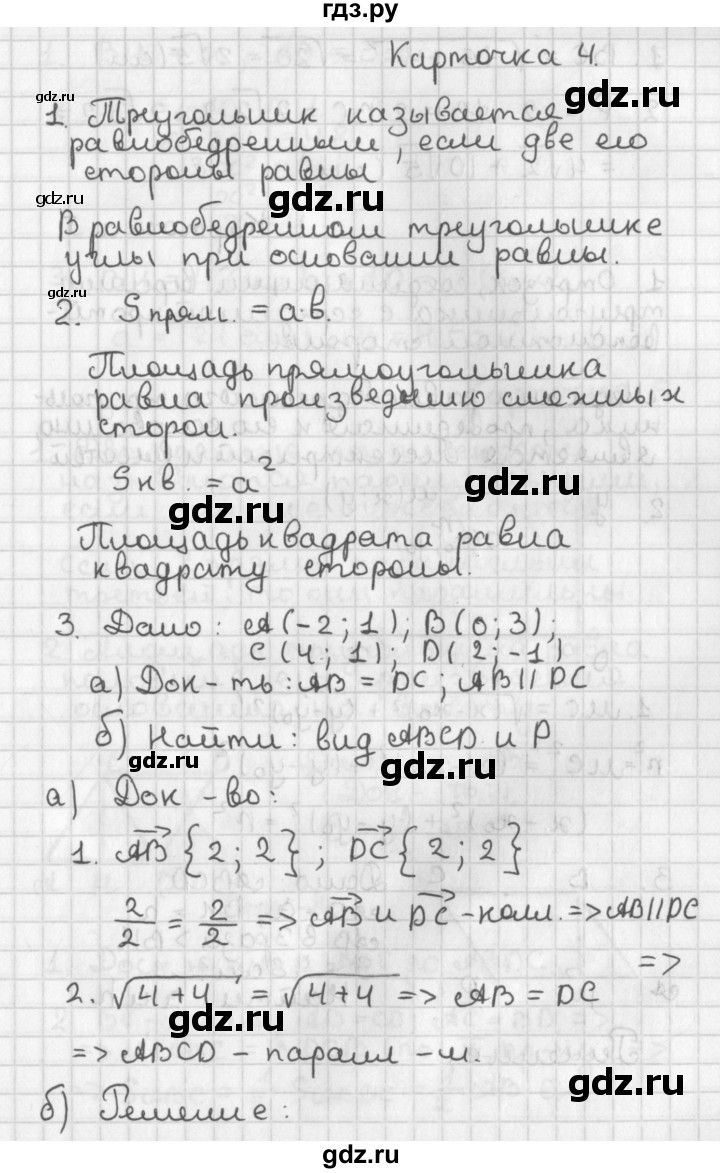 гдз.ру
Карточка 4.
1. Треугольник называется
равнобедренным, если две его
стороны равны
В равнобедренном треугольнике
углы при основании равны.
2. Sпрям. = a·в.
Площадь прямоугольника
равна произведению смежных
сторон.
Sкв. = a²
Площадь квадрата равна
квадрату стороны.
3. Дано: A(-2; 1); B(0; 3);
C(4; 1), D(2; -1)
а) Док-ть: AB = DC; AB || DC
б) Найти: вид ABCD и P
а) Док-во:
1. AB {2; 2}; DC {2; 2}
2/2 = 2/2 => AB и DC - колл. => AB || DC
=>
2. √4+4 = √4+4 => AB = DC
=> ABCD - паралл-м.
б) Решение:
gdz.ru
gdz.ru
gdz.ru
gdz.ru
gdz.ru
gdz.ru
gdz.ru
gdz.ru
gdz.ru
gdz.ru
gdz.ru
gdz.ru
gdz.ru
gdz.ru